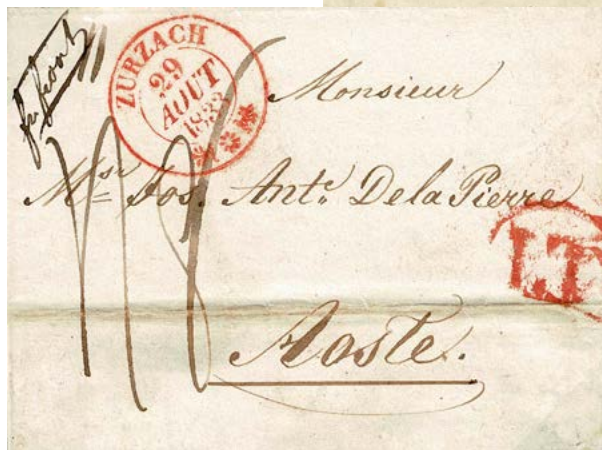 fr: front
ZURZACH
29
AOUT
1833
Monsieur
Msr. Jos. Ante. De la Pierre
L.T.
Aoste.